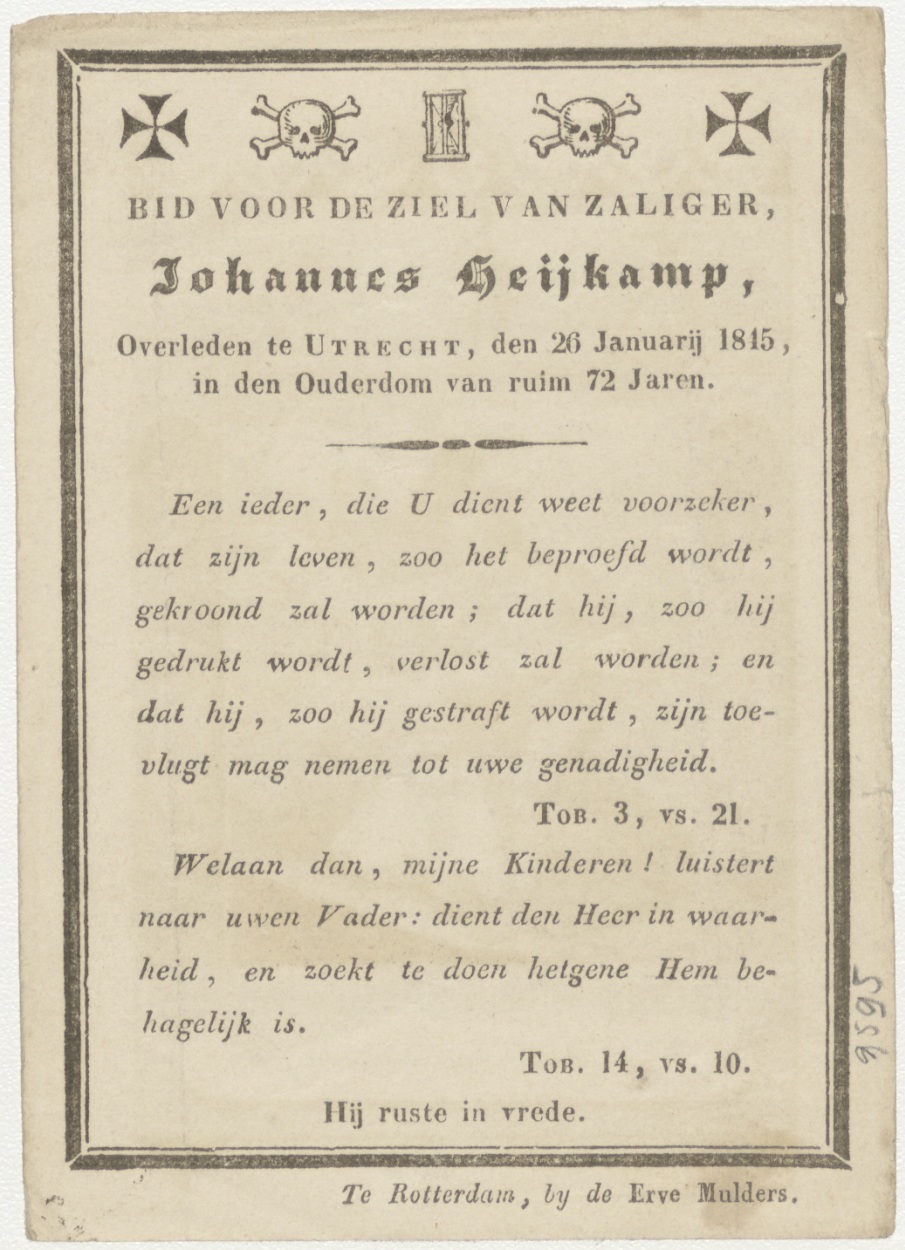 BID VOOR DE ZIEL VAN ZALIGER,
Johannes Heijkamp,
Overleden te UTRECHT, den 26 Januarij 1815,
in den Ouderdom van ruim 72 Jaren.
Een ieder, die U dient weet voorzeker,
dat zijn leven, zoo het beproefd wordt,
gekroond zal worden; dat hij, zoo hij
gedrukt wordt, verlost zal worden; en
dat hij, zoo hij gestraft wordt, zijn toe-
vlugt mag nemen tot uwe genadigheid.
TOB. 3, vs. 21.
Welaan dan, mijne Kinderen! luistert
naar uwen Vader: dient den Heer in waar-
heid, en zoekt te doen hetgene Hem be-
hagelijk is.
TOB. 14, vs. 10.
Hij ruste in vrede.
Te Rotterdam, by de Erve Mulders.
9595